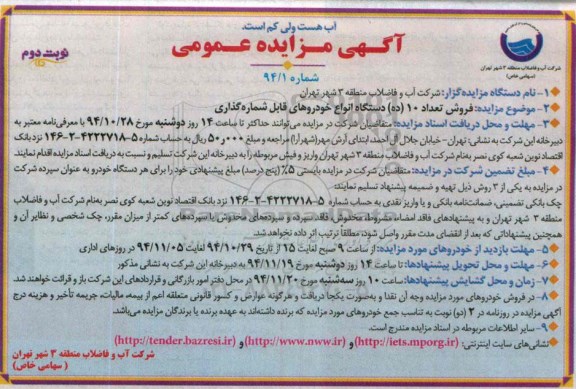 آب هست ولی کم است.
آگهی مزایده عمومی
شماره ۹۴/۱
نوبت دوم
شرکت آب و فاضلاب منطقه ۳ شهر تهران
(سهامی خاص)
۱- نام دستگاه مزایده‌گزار: شرکت آب و فاضلاب منطقه ۳ شهر تهران
۲- موضوع مزایده: فروش تعداد ۱۰ (ده) دستگاه انواع خودروهای قابل شماره‌گذاری
۳- مهلت و محل دریافت اسناد مزایده: متقاضیان شرکت در مزایده می‌توانند حداکثر تا ساعت ۱۴ روز دوشنبه مورخ ۹۴/۱۰/۲۸ با معرفی‌نامه معتبر به
دبیرخانه این شرکت به نشانی: تهران - خیابان جلال آل‌احمد، ابتدای آرش مهر(شهرآرا) مراجعه و مبلغ ۵۰۰٫۰۰۰ ریال به حساب شماره ۵-۴۲۲۲۷۱۸-۲-۱۴۶ نزد بانک
اقتصاد نوین شعبه کوی نصر به‌نام شرکت آب و فاضلاب منطقه ۳ شهر تهران واریز و فیش مربوطه را به دبیرخانه این شرکت تسلیم و نسبت به دریافت اسناد مزایده اقدام نمایند.
۴- مبلغ تضمین شرکت در مزایده: متقاضیان شرکت در مزایده بایستی ۵٪ (پنج درصد) مبلغ پیشنهادی خود را برای هر دستگاه خودرو به عنوان سپرده شرکت
در مزایده به یکی از ۳ روش ذیل تهیه و ضمیمه پیشنهاد تسلیم نمایند:
چک بانکی تضمینی، ضمانت‌نامه بانکی و یا واریز نقدی به حساب شماره ۵-۴۲۲۲۷۱۸-۲-۱۴۶ نزد بانک اقتصاد نوین شعبه کوی نصر به‌نام شرکت آب و فاضلاب
منطقه ۳ شهر تهران و به پیشنهادهای فاقد امضاء، مشروط، مخدوش، فاقد سپرده و سپرده‌های مخدوش یا سپرده‌های کمتر از میزان مقرر، چک شخصی و نظایر آن و
همچنین پیشنهاداتی که بعد از انقضای مدت مقرر واصل شود، مطلقا ترتیب اثر داده نخواهد شد.
۵- مهلت بازدید از خودروهای مورد مزایده: از ساعت ۹ صبح لغایت ۱۵ از تاریخ ۹۴/۱۰/۲۹ لغایت ۹۴/۱۱/۰۵ در روزهای اداری
۶- مهلت و محل تحویل پیشنهادها: تا ساعت ۱۴ روز دوشنبه مورخ ۹۴/۱۱/۱۹ به دبیرخانه این شرکت به نشانی مذکور
۷- زمان و محل گشایش پیشنهادها: ساعت ۱۰ روز سه‌شنبه مورخ ۹۴/۱۱/۲۰ در محل دفتر امور بازرگانی و قراردادهای این شرکت باز و قرائت خواهند شد.
۸- در فروش خودروهای مورد مزایده وجه آن نقدا و به‌صورت یکجا دریافت و هرگونه عوارض و کسور قانونی متعلقه اعم از بیمه، مالیات، جریمه تأخیر و هزینه درج
آگهی مزایده در روزنامه در ۲ (دو) نوبت به تناسب جمع خودروهای مورد مزایده که برنده داشته‌اند به عهده برنده یا برندگان مزایده می‌باشد.
۹- سایر اطلاعات مربوطه در اسناد مزایده مندرج است.
نشانی‌های سایت اینترنتی: (http://iets.mporg.ir) و (http://www.nww.ir) و (http://tender.bazresi.ir)
شرکت آب و فاضلاب منطقه ۳ شهر تهران
(سهامی خاص)